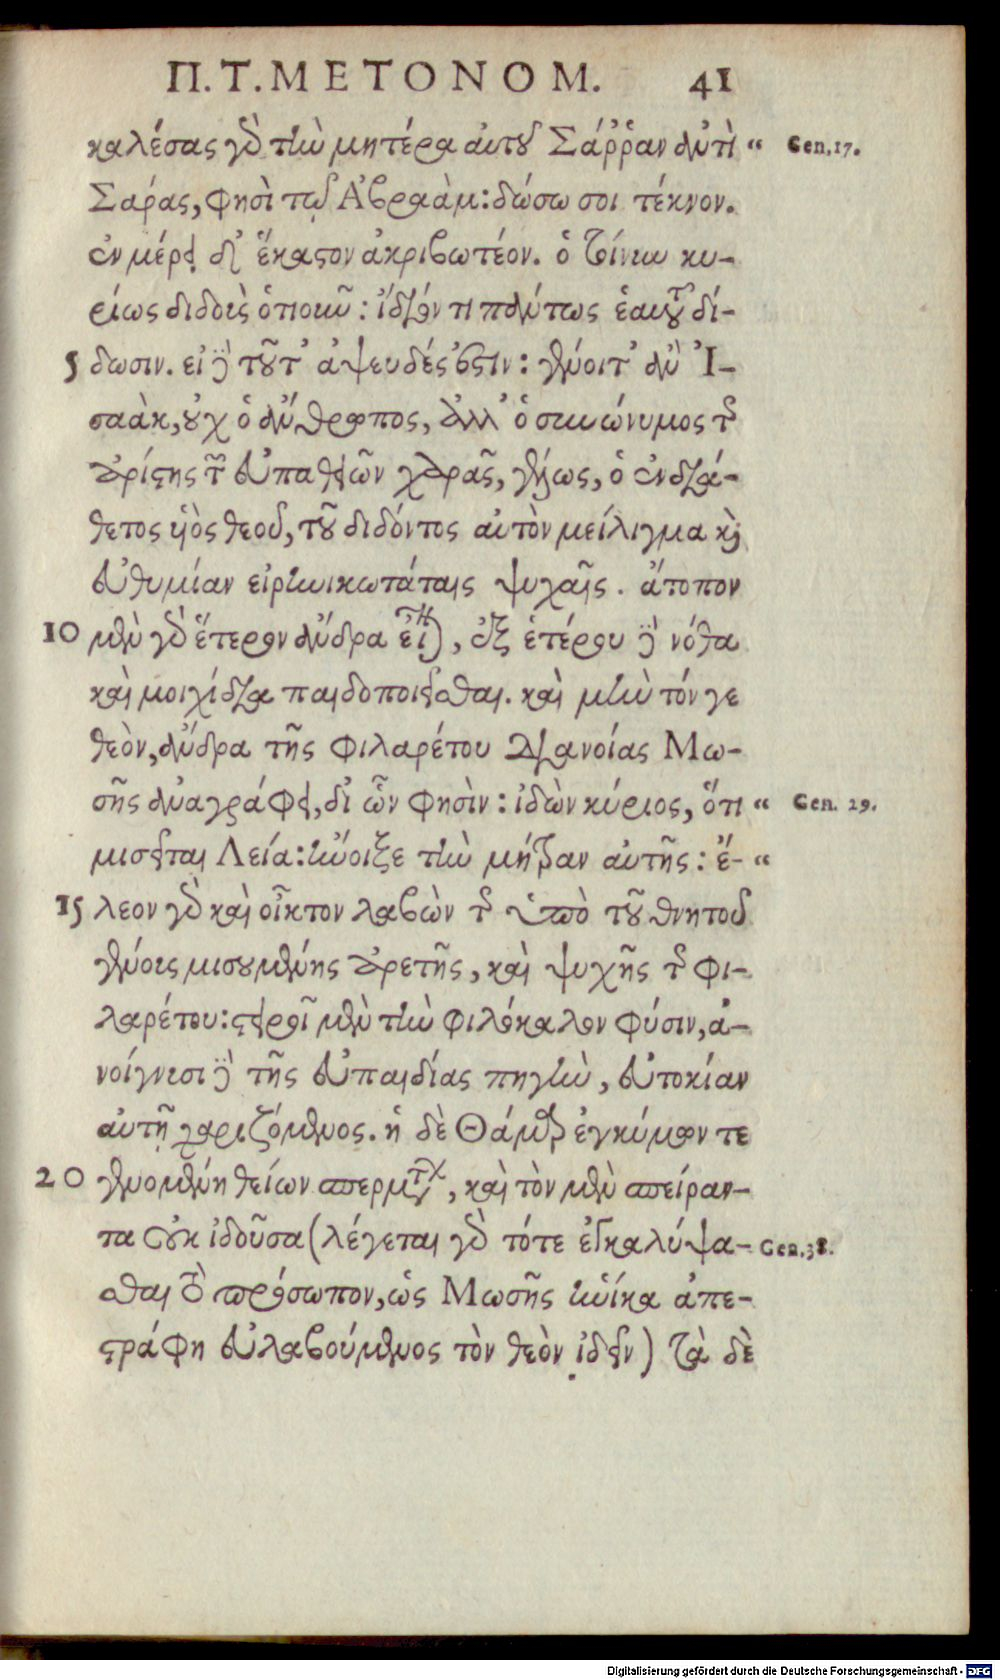 Π.Τ.ΜΕΤΟΝΟΜ. 41
καλέσας γὰρ τὴν μητέρα αὐτοῦ Σάῤῥαν ἀντὶ “ Gen.17.
Σαράς, φησὶ τῷ Ἀβραὰμ: δώσω σοι τέκνον.
ἐν μέρει δὲ ἕκαστον ἀκριβωτέον. ὁ τοίνυν κυ-
ρίως διδοὺς ὁτιοῦν: ἴδιόν τι πάντως ἑαυτοῦ δί-
5 δωσιν. εἰ δὲ τοῦτ’ ἀψευδές ἐστιν: γένοιτ’ ἂν Ἰ-
σαὰκ, οὐχ ὁ ἄνθρωπος, ἀλλ’ ὁ συνώνυμος τῆς
ἀρίστης τῶν εὐπαθειῶν χαρᾶς, γέλως, ὁ ἐνδιά-
θετος υἱὸς θεοῦ, τοῦ διδόντος αὐτὸν μείλιγμα καὶ
εὐθυμίαν εἰρηνικωτάταις ψυχαῖς. ἄτοπον
10 μὲν γὰρ ἕτερον ἄνδρα εἶναι, ἐξ ἑτέρου δὲ νόθα
καὶ μοιχίδια παιδοποιεῖσθαι. καὶ μὴν τόν γε
θεὸν, ἄνδρα τῆς φιλαρέτου διανοίας Μω-
σῆς ἀναγράφει, δι’ ὧν φησὶν: ἰδὼν κύριος, ὅτι “ Gen. 29.
μισεῖται Λεία: ἤνοιξε τὴν μήτραν αὐτῆς: ἔ- “
15 λεον γὰρ καὶ οἶκτον λαβὼν τῆς ὑπὸ τοῦ θνητοῦ
γένους μισουμένης ἀρετῆς, καὶ ψυχῆς τῆς φι-
λαρέτου: στειροῖ μὲν τὴν φιλόκαλον φύσιν, ἀ-
νοίγνυσι δὲ τῆς εὐπαιδίας πηγὴν, εὐτοκίαν
αὐτῇ χαριζόμενος. ἡ δὲ Θάμαρ ἐγκύμων τε
20 γενομένη θείων σπερμάτων, καὶ τὸν μὲν σπείραν-
τα οὐκ ἰδοῦσα (λέγεται γὰρ τότε ἐγκαλύψα- Gen.38.
σθαι τὸ πρόσωπον, ὡς Μωσῆς ἡνίκα ἀπε-
στράφη εὐλαβούμενος τὸν θεὸν ἰδεῖν) τὰ δὲ
Digitalisierung gefördert durch die Deutsche Forschungsgemeinschaft - DFG